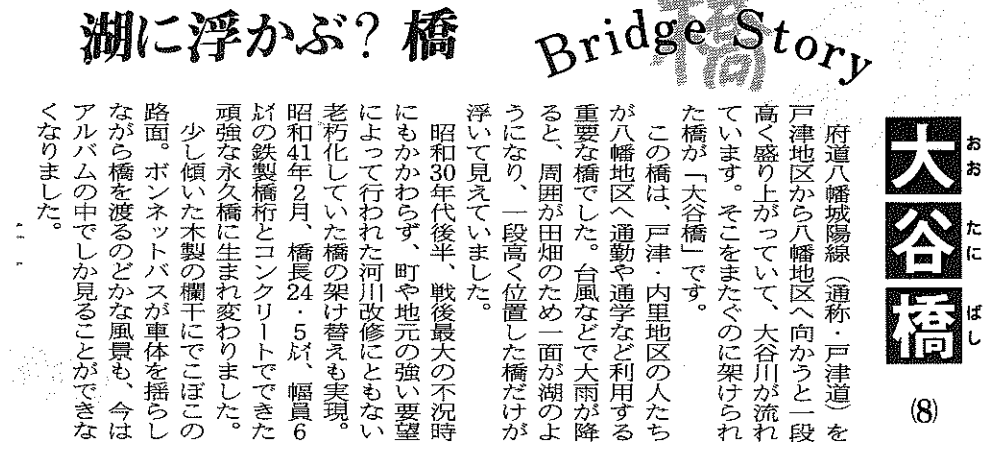 湖に浮かぶ？橋
橋
Bridge Story
大谷橋
おお たに ばし
(8)
府道八幡城陽線（通称・戸津道）を
戸津地区から八幡地区へ向かうと一段
高く盛り上がっていて、大谷川が流れ
ています。そこをまたぐのに架けられ
た橋が「大谷橋」です。
この橋は、戸津・内里地区の人たち
が八幡地区へ通勤や通学など利用する
重要な橋でした。台風などで大雨が降
ると、周囲が田畑のため一面が湖のよ
うになり、一段高く位置した橋だけが
浮いて見えていました。
昭和30年代後半、戦後最大の不況時
にもかかわらず、町や地元の強い要望
によって行われた河川改修にともない
老朽化していた橋の架け替えも実現。
昭和41年2月、橋長24・5㍍、幅員6
㍍の鉄製橋桁とコンクリートでできた
頑強な永久橋に生まれ変わりました。
少し傾いた木製の欄干にでこぼこの
路面。ボンネットバスが車体を揺らし
ながら橋を渡るのどかな風景も、今は
アルバムの中でしか見ることができな
くなりました。